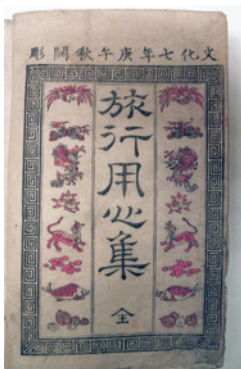 文化七年庚午秋開彫
旅行用心集
全